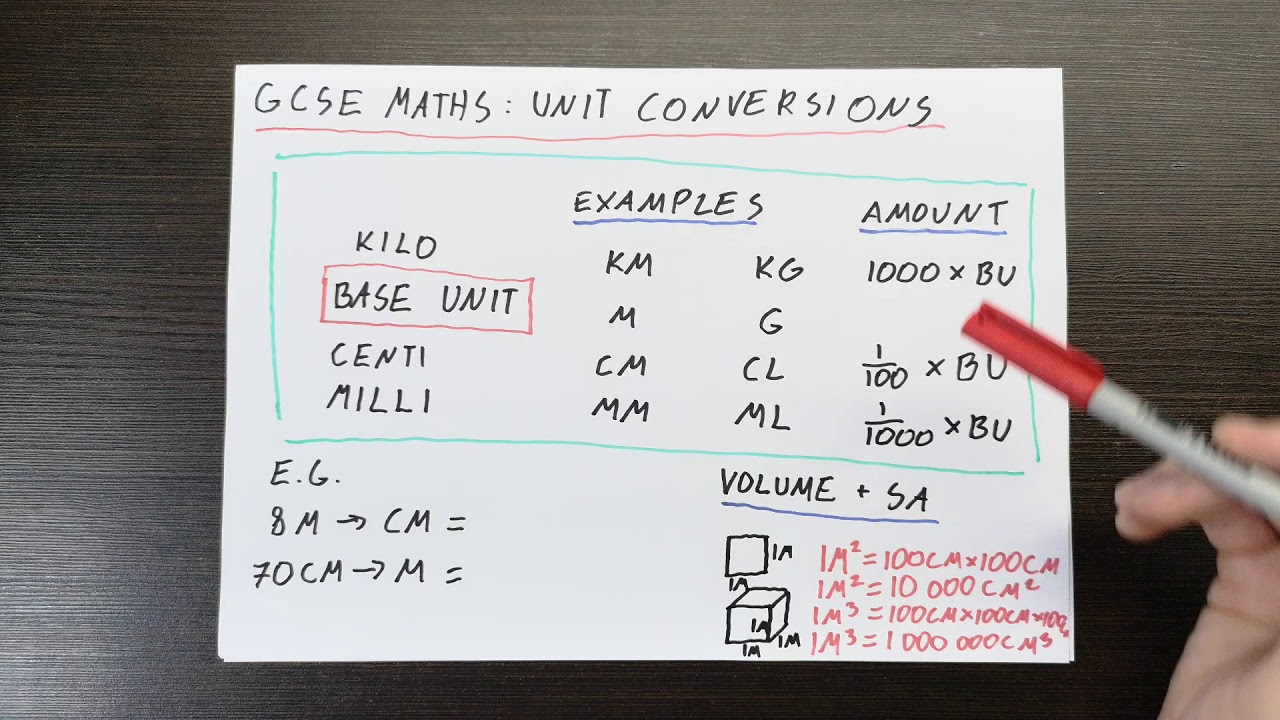 GCSE MATHS: UNIT CONVERSIONS
EXAMPLES AMOUNT
KILO KM KG 1000 × BU
BASE UNIT M G
CENTI CM CL 1/100 × BU
MILLI MM ML 1/1000 × BU
E.G.
8M → CM =
70CM → M =
VOLUME + SA
1M
1M
1M² = 100CM×100CM
1M² = 10 000CM²
1M³ = 100CM×100CM×100
1M³ = 1 000 000CM³
1M
1M
1M